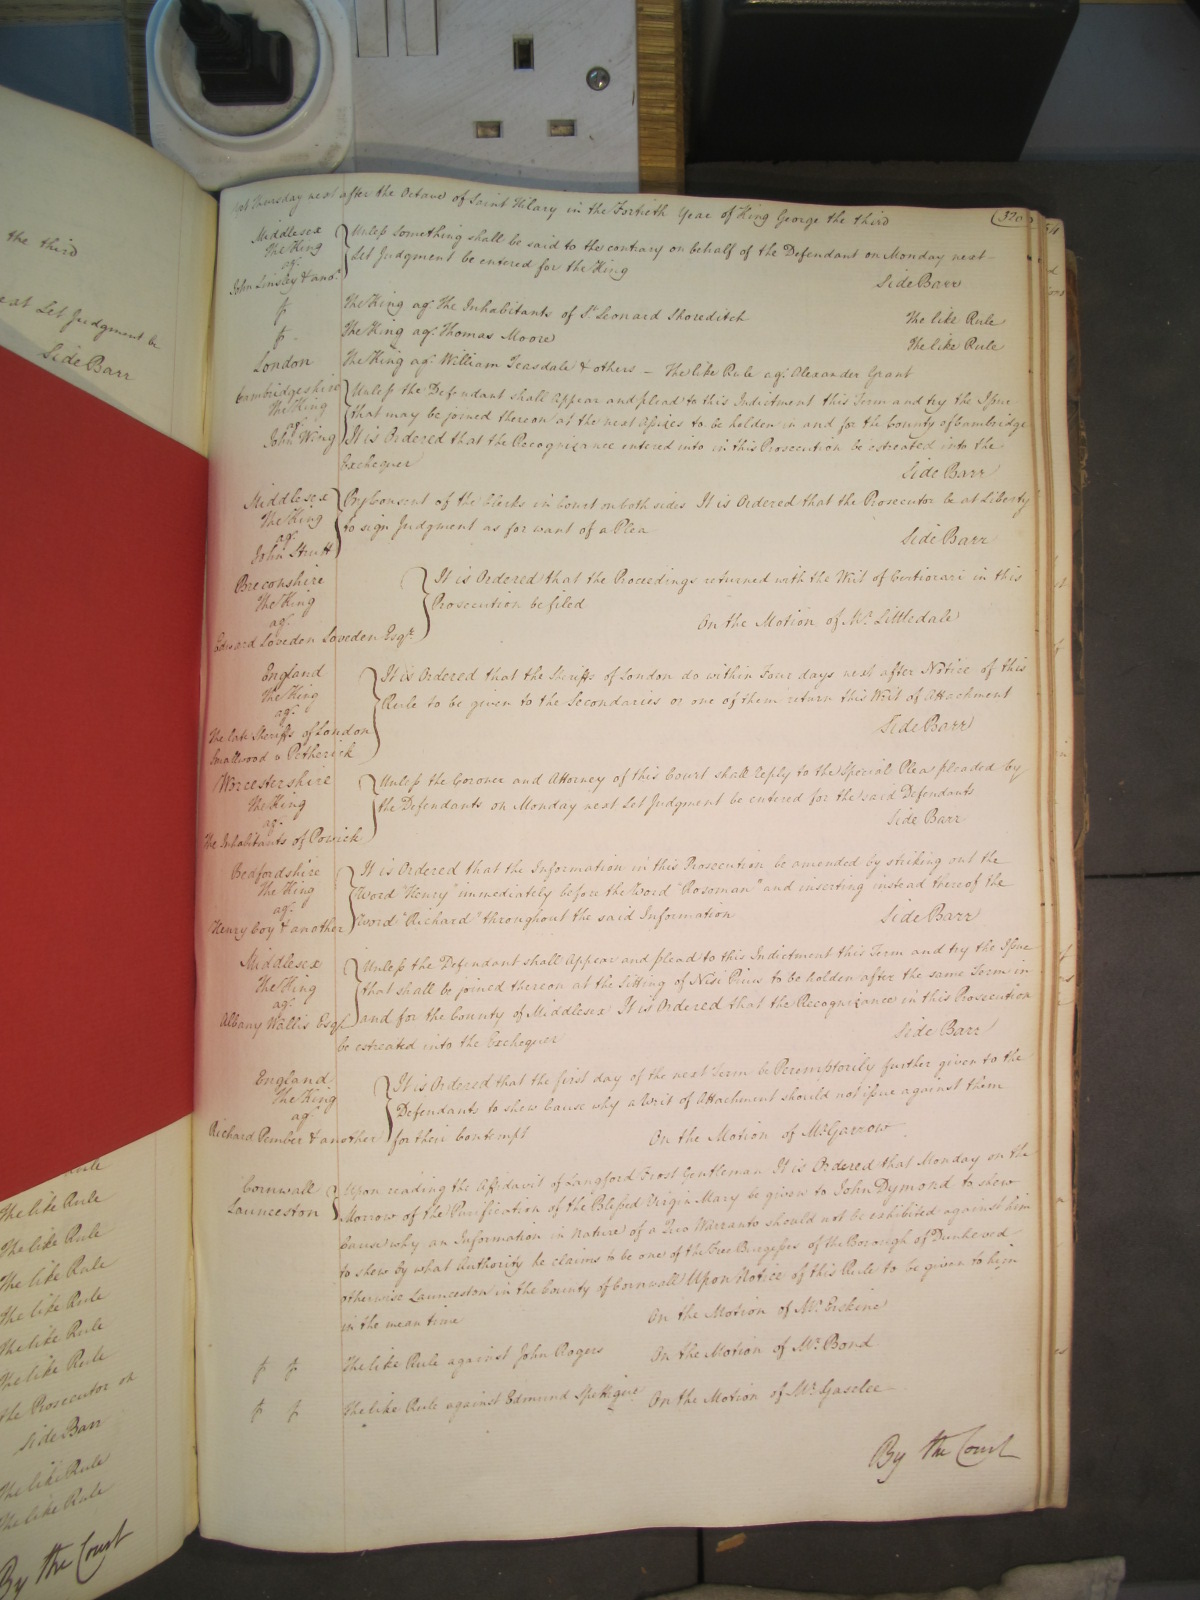 the third
at Let Judgment be
Side Barr
Rule
The like Rule
The like Rule
The like Rule
The like Rule
The like Rule
The like Rule
the Prosecutor
Side Barr
The like Rule
The like Rule
By the Court
Thursday next after the Octave of Saint Hilary in the Fortieth Year of King George the third
(320)
Middlesex
The King
agt
John Linsley & anor
Unless something shall be said to the contrary on behalf of the Defendant on Monday next
Let Judgment be entered for the King
Side Barr
The King agt The Inhabitants of St Leonard Shoreditch The like Rule
The King agt Thomas Moore The like Rule
London The King agt William Teasdale & others – The like Rule agt Alexander Grant
Cambridgeshire
The King
agt
John Wing
Unless the Defendant shall Appear and plead to this Indictment this Term and try the Issue
that may be joined thereon at the next Assizes to be holden in and for the County of Cambridge
It is Ordered that the Recognizance entered into in this Prosecution be estreated into the
Exchequer
Side Barr
Middlesex
The King
agt
John Strutt
By Consent of the Clerks in Court on both sides It is Ordered that the Prosecutor be at Liberty
to sign Judgment as for want of a Plea
Side Barr
Breconshire
The King
agt
Edward Loveden Loveden Esqr
It is Ordered that the Proceedings returned with the Writ of Certiorari in this
Prosecution be filed
On the Motion of Mr Littledale
England
The King
agt
The late Sheriffs of London
Smallwood v Petherick
It is Ordered that the Sheriffs of London do within Four days next after Notice of this
Rule to be given to the Secondaries or one of them return this Writ of Attachment
Side Barr
Worcestershire
The King
agt
The Inhabitants of Powick
Unless the Coroner and Attorney of this Court shall reply to the Special Plea pleaded by
the Defendants on Monday next Let Judgment be entered for the said Defendants
Side Barr
Bedfordshire
The King
agt
Henry Coy & another
It is Ordered that the Information in this Prosecution be amended by striking out the
Word "Henry" immediately before the Word "Rosoman" and inserting instead thereof the
Word "Richard" throughout the said Information
Side Barr
Middlesex
The King
agt
Albany Wallis Esqr
Unless the Defendant shall Appear and plead to this Indictment this Term and try the Issue
that shall be joined thereon at the Sitting of Nisi Prius to be holden after the same Term in
and for the County of Middlesex It is Ordered that the Recognizance in this Prosecution
be estreated into the Exchequer
Side Barr
England
The King
agt
Richard Pember & another
It is Ordered that the first day of the next Term be Peremptorily further given to the
Defendants to shew Cause why a Writ of Attachment should not issue against them
for their Contempt
On the Motion of Mr Garrow
Cornwall
Launceston
Upon reading the Affidavit of Langford Frost Gentleman It is Ordered that Monday on the
Morrow of the Purification of the Blessed Virgin Mary be given to John Dymond to shew
Cause why an Information in Nature of a Quo Warranto should not be exhibited against him
to shew by what Authority he claims to be one of the Free Burgesses of the Borough of Dunheved
otherwise Launceston in the County of Cornwall Upon Notice of this Rule to be given to him
in the mean time
On the Motion of Mr Erskine
The like Rule against John Rogers On the Motion of Mr Bond
The like Rule against Edmund Spettigue On the Motion of Mr Gaselee
By the Court